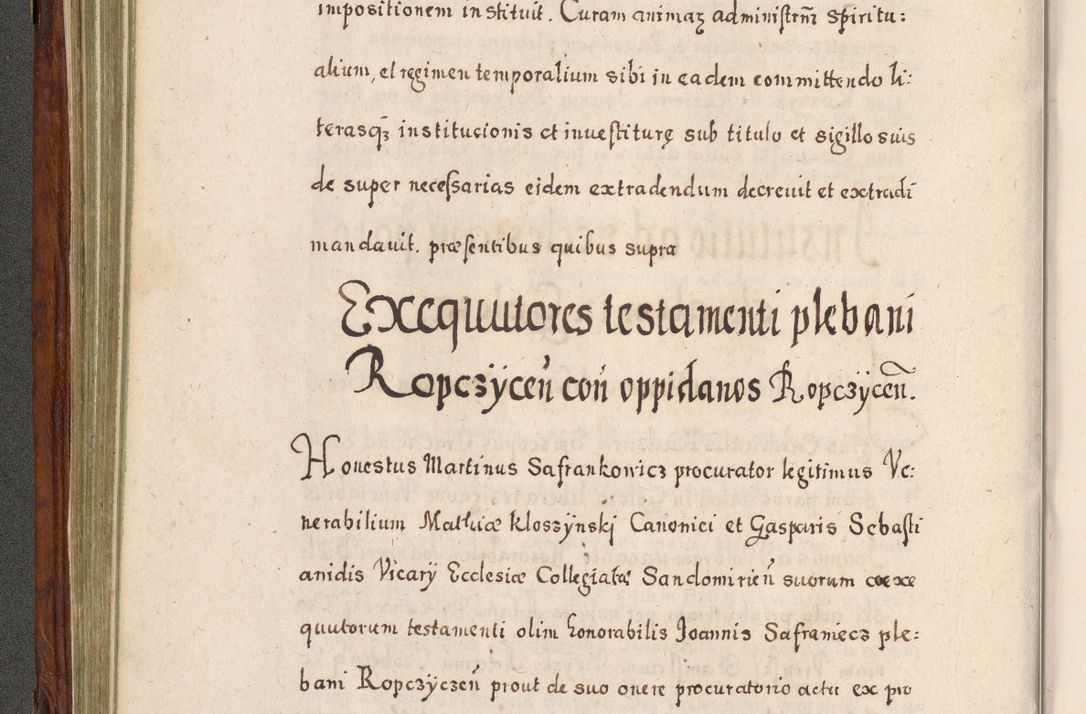 impositionem instituit. Curam animaꝝ administrãm spiritu:
alium, et regimen temporalium sibi in eadem committendo li:
terasq̃ institucionis et inuestiturę sub titulo et sigillo suis
de super necessarias eidem extradendum decreuit et extradi
mandauit. præsentibus quibus supra
Execquutores testamenti plebani
Ropczÿceñ coñ oppidanos Ropczÿceñ.
Honestus Martinus Safrankowicz procurator legitimus Ve:
nerabilium Mathiæ Kloszÿnskj Canonici et Gasparis Sebasti
anidis Vicarÿ Ecclesiæ Collegiatæ Sandomirieñ suorum coexe
quutorum testamenti olim honorabilis Joannis Saframecz ple:
bani Ropczÿczeñ prout de suo onere procuratorio actu ex pro